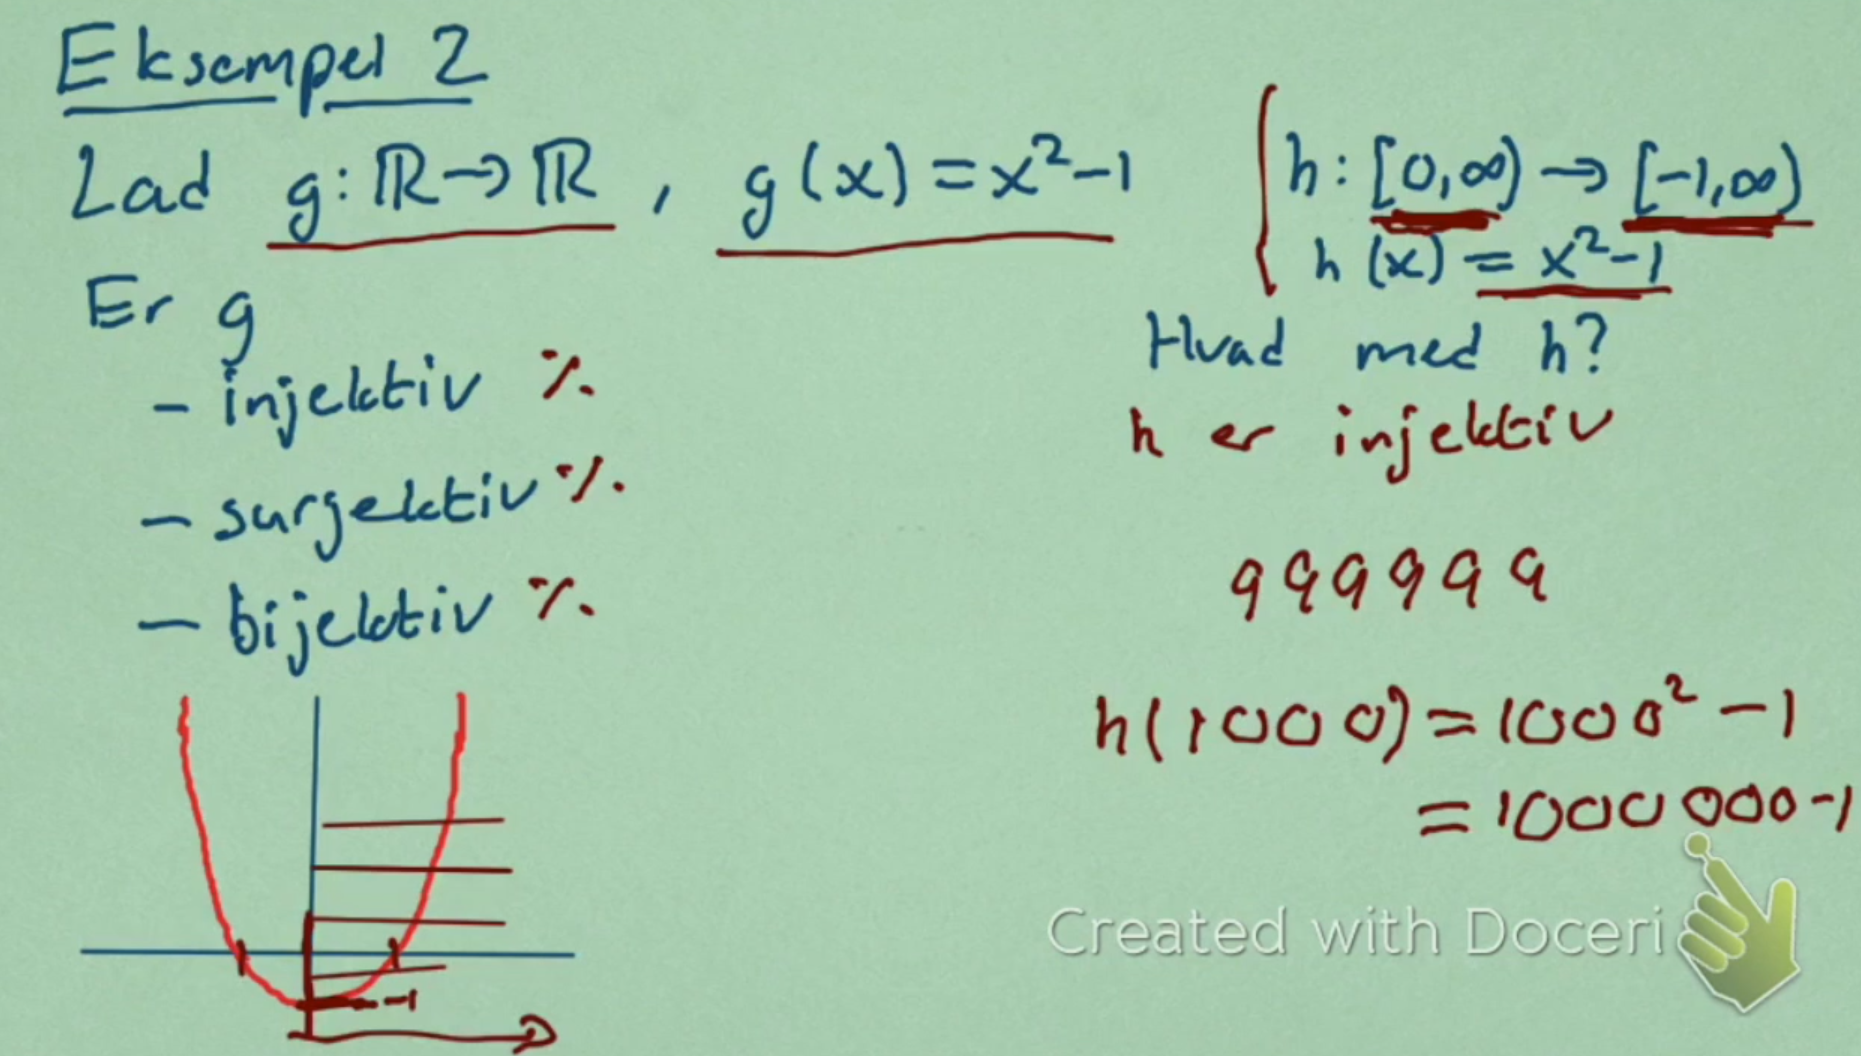 Eksempel 2
Lad g: ℝ→ℝ , g(x)=x²-1
Er g
- injektiv ⁒
- surjektiv ⁒
- bijektiv ⁒
-1
h: [0,∞) → [-1,∞)
h(x) = x²-1
Hvad med h?
h er injektiv
999999
h(1000) = 1000² -1
= 1000 000 -1
Created with Doceri